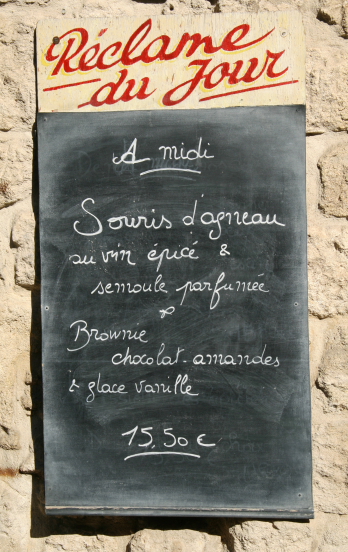 Réclame
du Jour
A midi
Souris d'agneau
au vin épicé &
semoule parfumée
Brownie
chocolat-amandes
& glace vanille
15,50 €